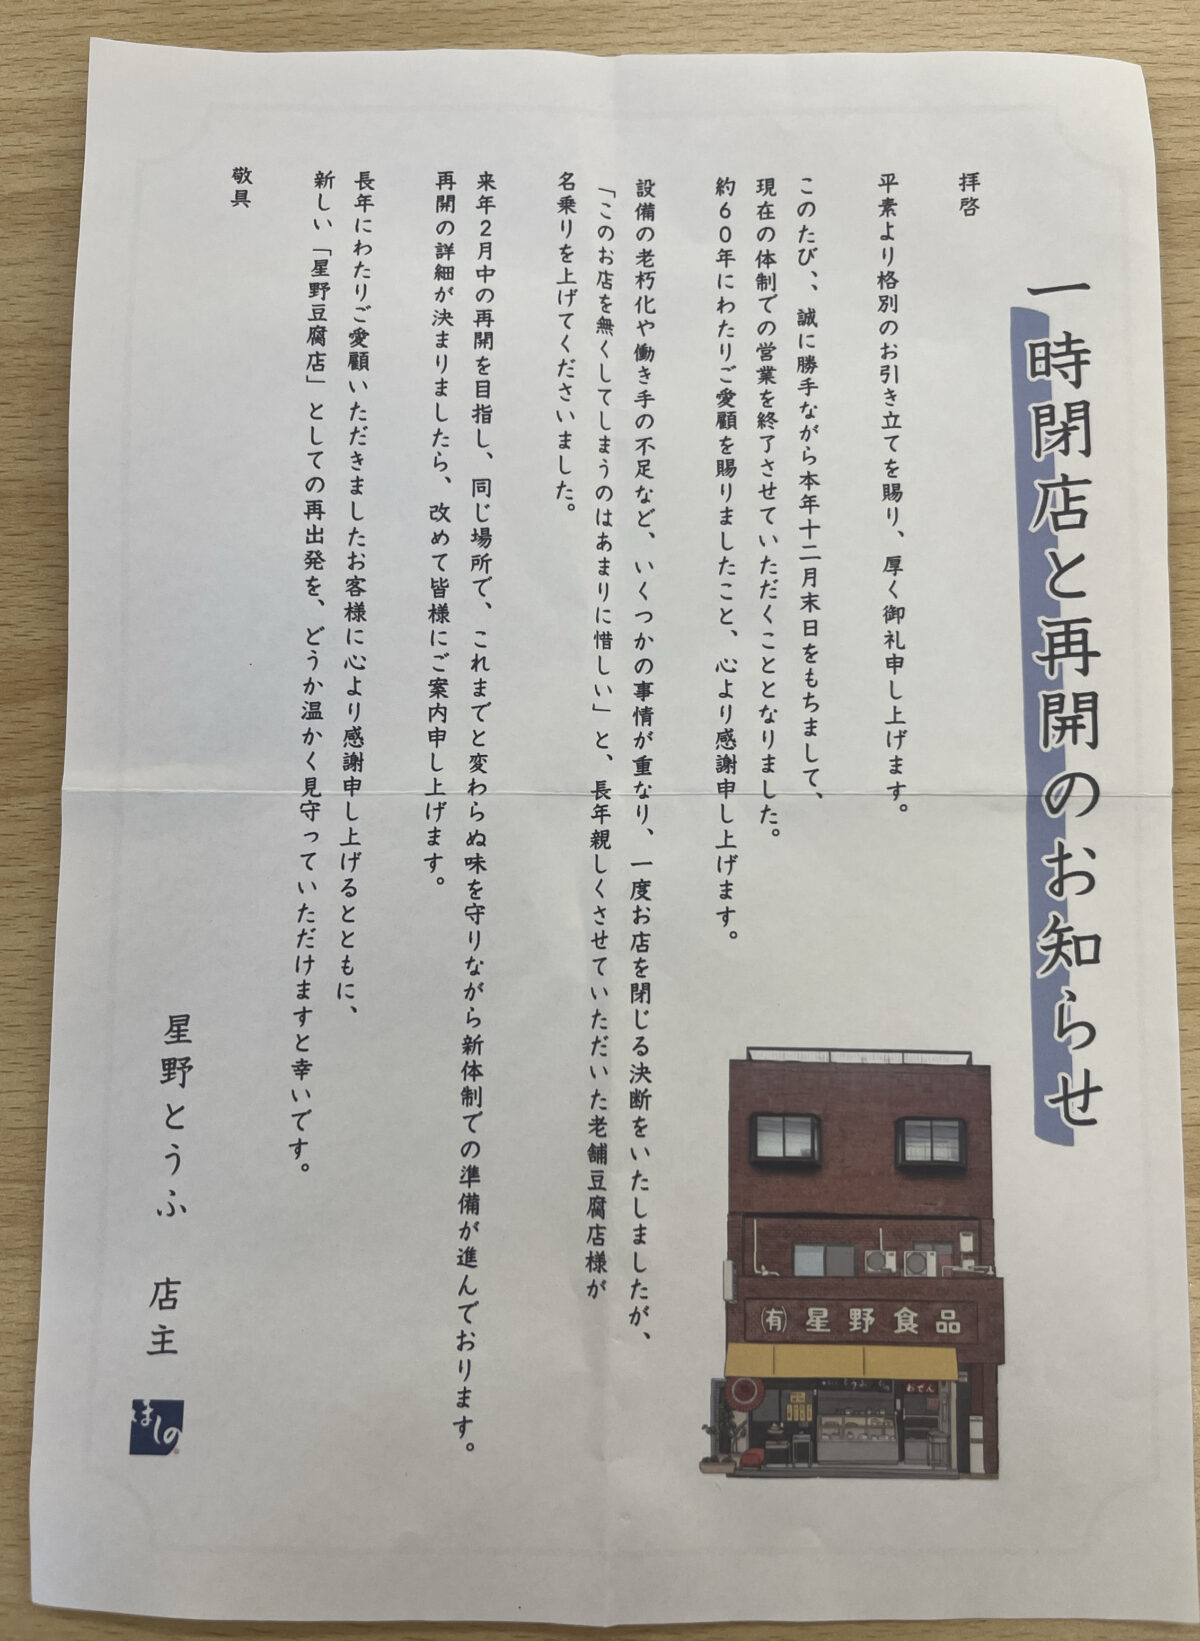 一時閉店と再開のお知らせ
拝啓
平素より格別のお引き立てを賜り、厚く御礼申し上げます。
このたび、、誠に勝手ながら本年十二月末日をもちまして、
現在の体制での営業を終了させていただくこととなりました。
約60年にわたりご愛顧を賜りましたこと、心より感謝申し上げます。
設備の老朽化や働き手の不足など、いくつかの事情が重なり、一度お店を閉じる決断をいたしましたが、
「このお店を無くしてしまうのはあまりに惜しい」と、長年親しくさせていただいた老舗豆腐店様が
名乗りを上げてくださいました。
来年2月中の再開を目指し、同じ場所で、これまでと変わらぬ味を守りながら新体制での準備が進んでおります。
再開の詳細が決まりましたら、改めて皆様にご案内申し上げます。
長年にわたりご愛顧いただきましたお客様に心より感謝申し上げるとともに、
新しい「星野豆腐店」としての再出発を、どうか温かく見守っていただけますと幸いです。
敬具
星野とうふ 店主
ほしの
㈲星野食品
おでん